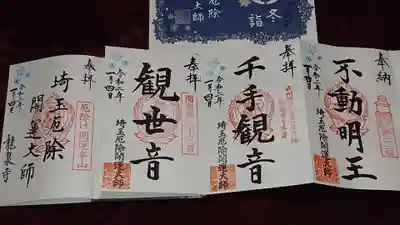 冬詣
厄除
大師
奉納
不動明王
令和二年
一月四日
埼玉厄除開運大師
奉拝
千手観音
令和二年
一月四日
埼玉厄除開運大師
奉拝
観世音
令和二年
一月四日
埼玉厄除開運大師
奉拝
令和二年
一月四日
埼玉厄除
開運大師
龍泉寺
厄除け開運本山